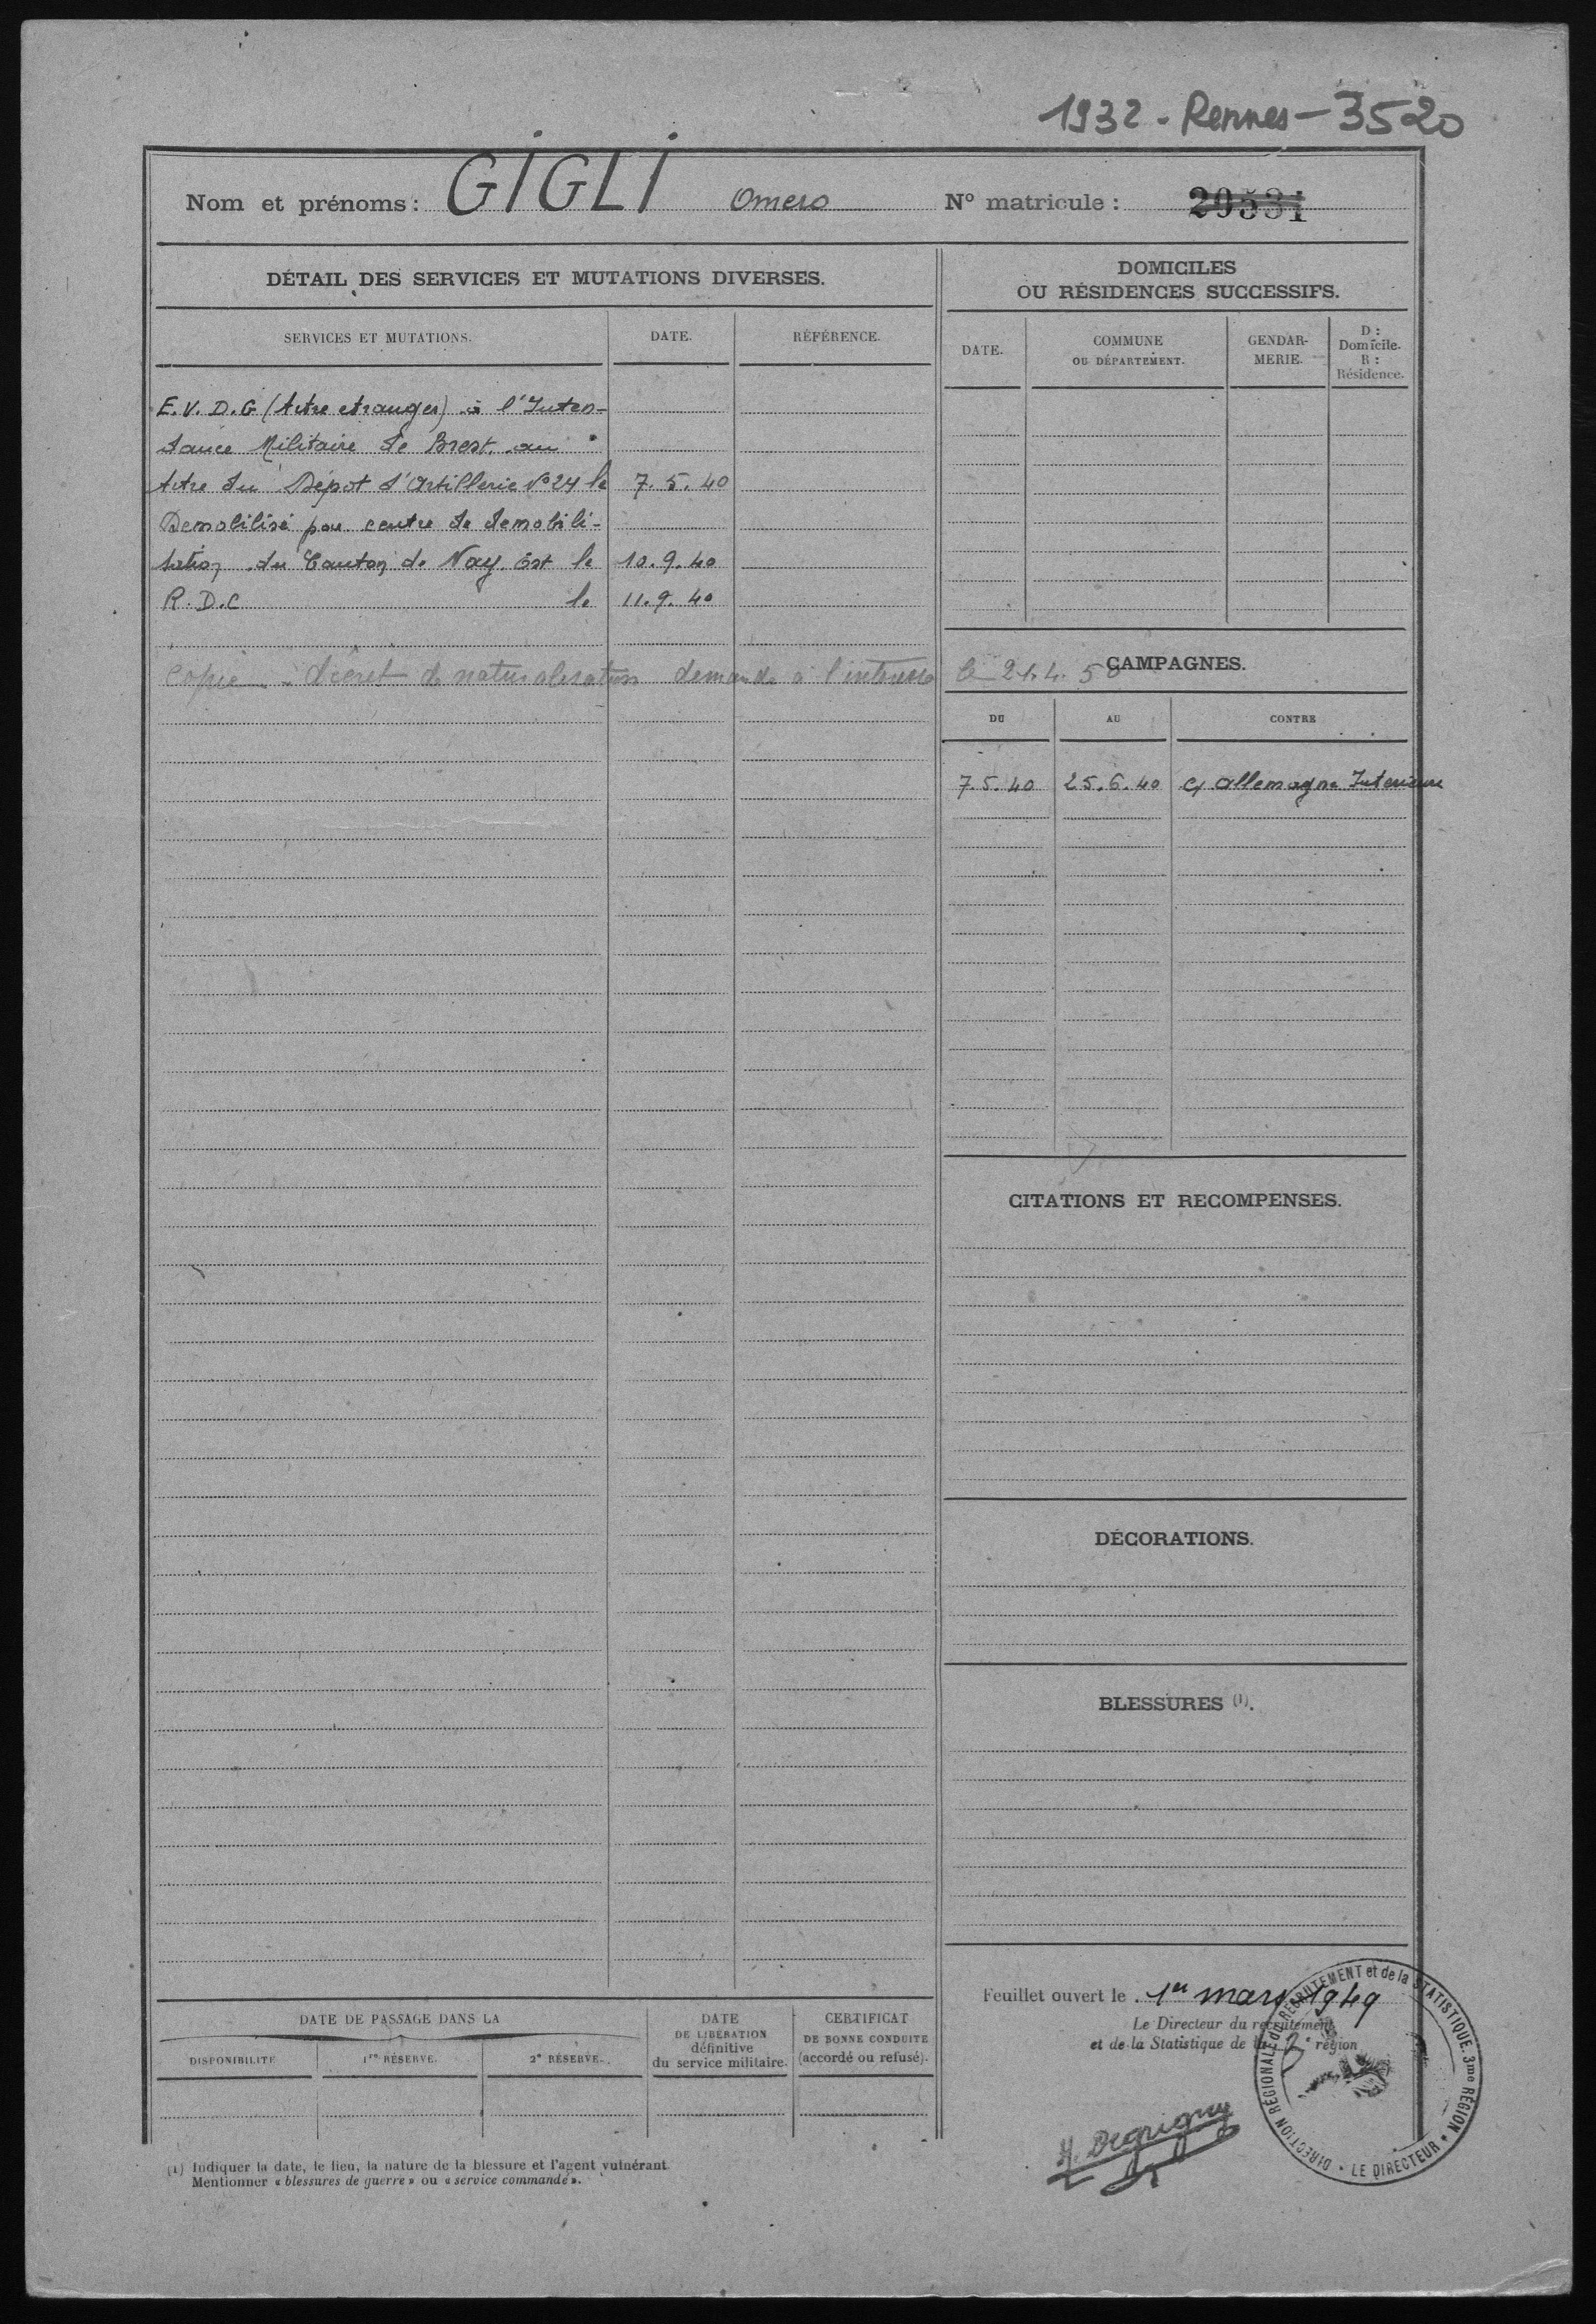 1932 - Rennes - 3520
Nom et prénoms : GIGLI Omero N° matricule : 29531
DÉTAIL DES SERVICES ET MUTATIONS DIVERSES.
SERVICES ET MUTATIONS. DATE. RÉFÉRENCE.
E.V.D.G (titre etranger) à l'Inten-
dance Militaire de Brest. au
titre du Dépot d'Artillerie N° 24 le 7.5.40
Demobilisé par centre de demobili-
sation du Canton de Nay. Est le 10.9.40
R.D.C le 11.9.40
Copie décret de naturalisation demande à l'interessé le 21.4.50
DOMICILES
OU RÉSIDENCES SUCCESSIFS.
DATE. COMMUNE
OU DÉPARTEMENT. GENDAR-
MERIE. D :
Domicile.
R :
Résidence.
CAMPAGNES.
DU AU CONTRE
7.5.40 25.6.40 C/ Allemagne Interieure
CITATIONS ET RECOMPENSES.
DÉCORATIONS.
BLESSURES (1).
Feuillet ouvert le 1er mars 1949
Le Directeur du recrutement
et de la Statistique de la 3e région
DIRECTION RÉGIONALE du RECRUTEMENT et de la STATISTIQUE. 3me RÉGION
LE DIRECTEUR
DATE DE PASSAGE DANS LA
DISPONIBILITÉ 1re RÉSERVE. 2e RÉSERVE.
DATE
DE LIBÉRATION
définitive
du service militaire.
CERTIFICAT
DE BONNE CONDUITE
(accordé ou refusé).
(1) Indiquer la date, le lieu, la nature de la blessure et l'agent vulnérant
Mentionner « blessures de guerre » ou « service commandé ».